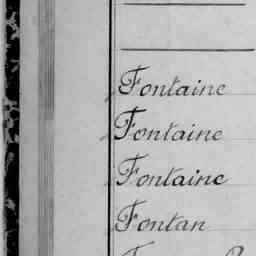 Fontaine
Fontaine
Fontaine
Fontan